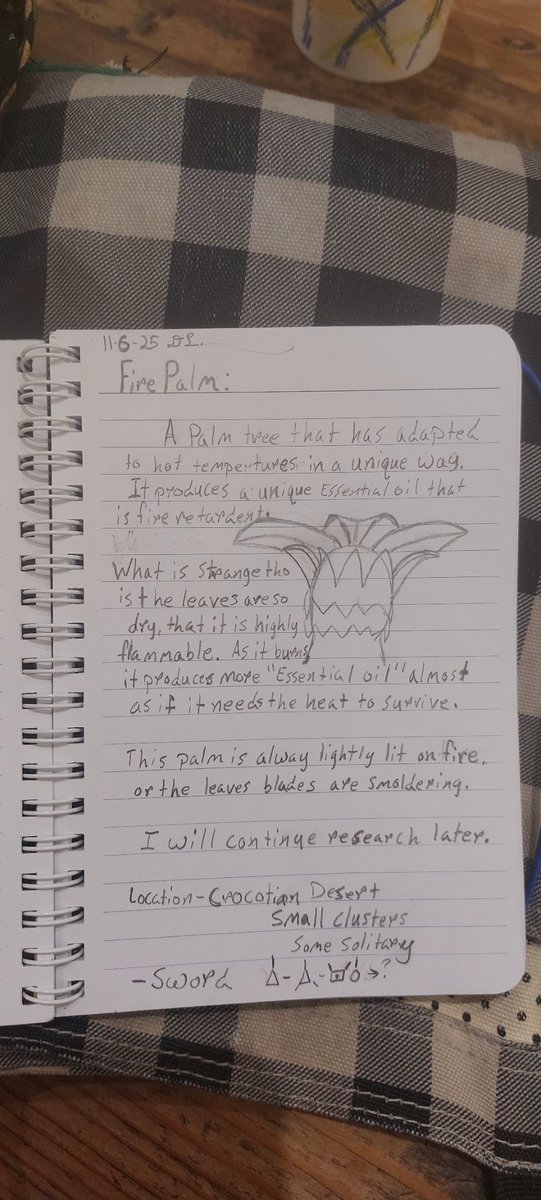 11-6-25 DL.
Fire Palm:
A Palm tree that has adapted
to hot tempertures in a unique way.
It produces a unique Essential oil that
is fire retardent.
What is strange tho
is the leaves are so
dry, that it is highly
flammable. As it burns
it produces more "Essential oil" almost
as if it needs the heat to survive.
This palm is alway lightly lit on fire.
or the leaves blades are smoldering.
I will continue research later.
Location - Crocotian Desert
Small clusters
Some Solitary
- Sword